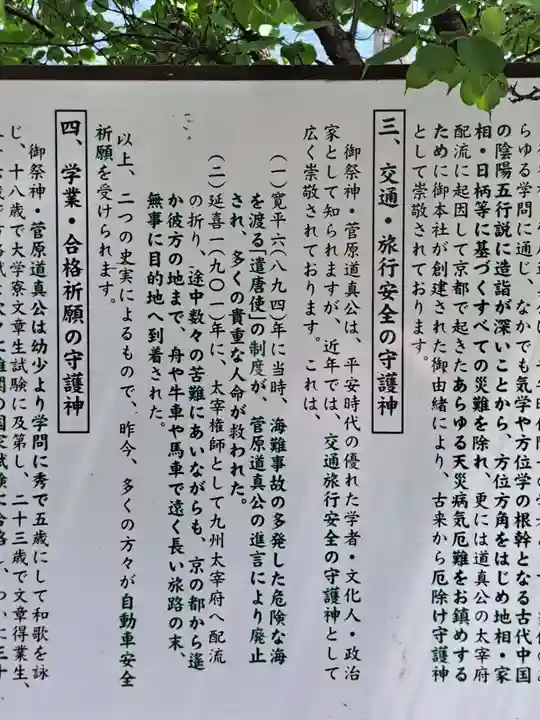 らゆる学問に通じ、なかでも気学や方位学の根幹となる古代中国
の陰陽五行説に造詣が深いことから、方位方角をはじめ地相・家
相・日柄等に基づくすべての災難を除れ、更には道真公の太宰府
配流に起因して京都で起きたあらゆる天災病気厄難をお鎮めする
ために御本社が創建された御由緒により、古来から厄除け守護神
として崇敬されております。
三、交通・旅行安全の守護神
御祭神・菅原道真公は、平安時代の優れた学者・文化人・政治
家として知られますが、近年では、交通旅行安全の守護神として
広く崇敬されております。これは、
(一)寛平六(八九四)年に当時、海難事故の多発した危険な海
を渡る「遣唐使」の制度が、菅原道真公の進言により廃止
され、多くの貴重な人命が救われた。
(二)延喜一(九〇一)年に、太宰権師として九州太宰府へ配流
の折り、途中数々の苦難にあいながらも、京の都から遙
か彼方の地まで、舟や牛車や馬車で遠く長い旅路の末
無事に目的地へ到着された。
以上、二つの史実によるもので、昨今、多くの方々が自動車安全
祈願を受けられます。
四、学業・合格祈願の守護神
御祭神・菅原道真公は幼少より学問に秀で五歳にして和歌を詠
じ、十八歳で大学寮文章生試験に及第し、二十三歳で文章得業生、